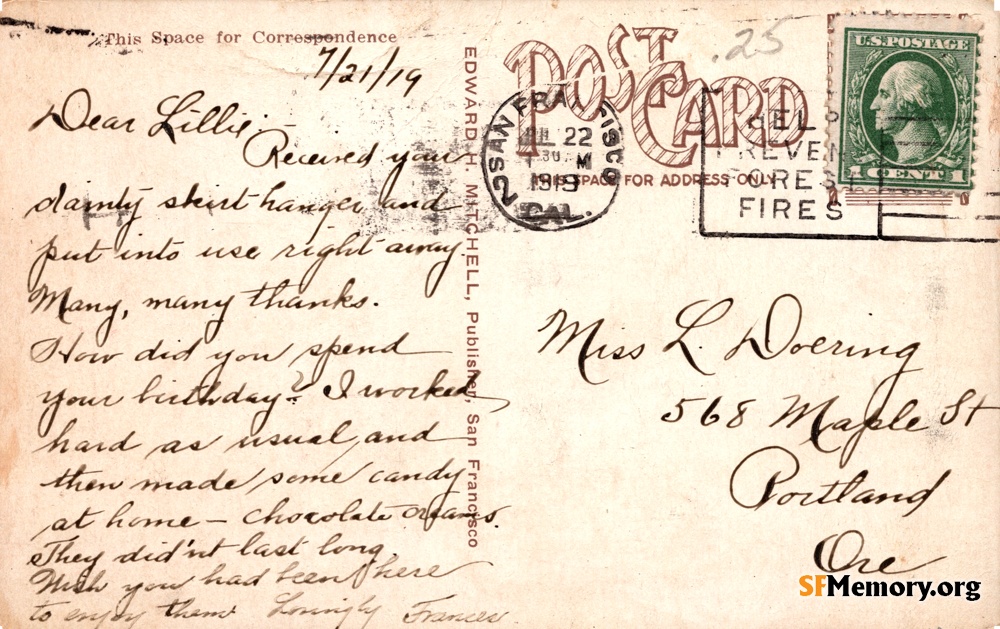 This Space for Correspondence
7/21/19
Dear Lillie:-
Received your
dainty skirt hanger and
put into use right away.
Many, many thanks.
How did you spend
your birthday? I worked
hard as usual, and
then made some candy
at home – chocolate creams.
They did'nt last long.
Wish you had been here
to enjoy them Lovingly Frances.
EDWARD H. MITCHELL, Publisher, San Francisco
POST CARD
.25
THIS SPACE FOR ADDRESS ONLY
SAN FRANCISCO
2
22
M
1919
CAL.
HELP
PREVENT
FORES
FIRES
U.S. POSTAGE
1 CENT 1
Miss L. Doering
568 Maple St
Portland
Ore
SFMemory.org